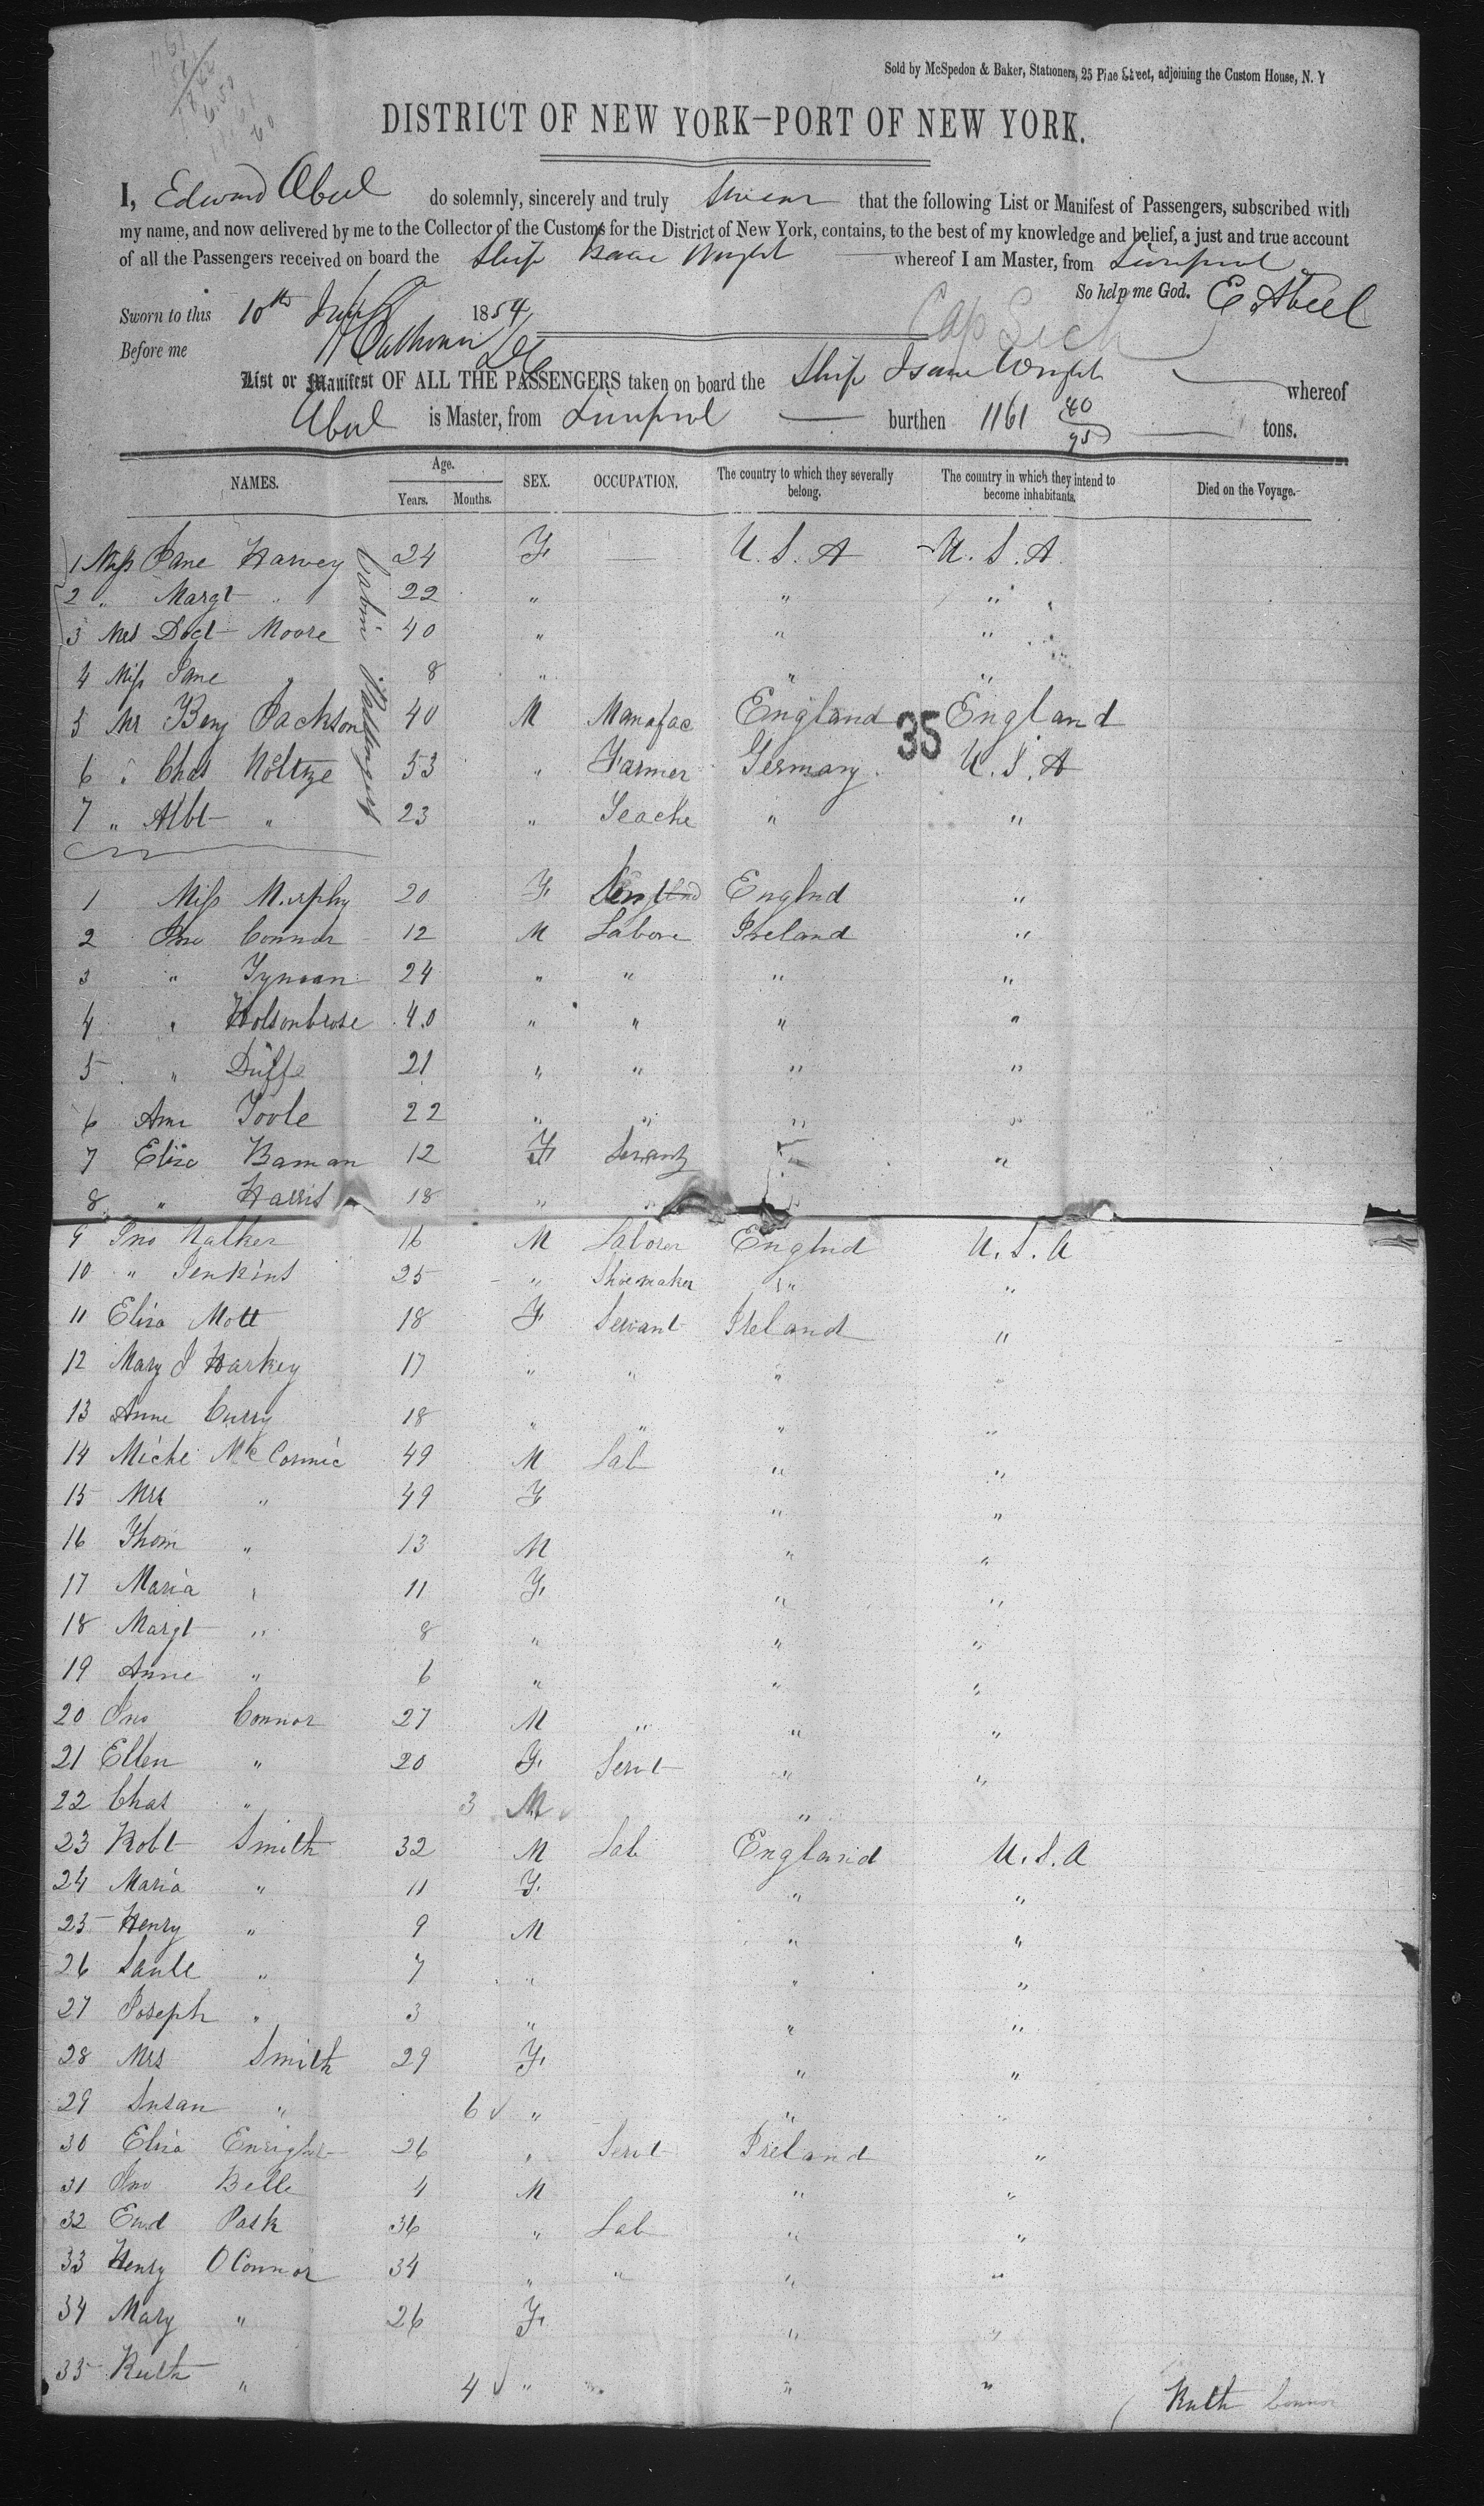 Sold by McSpedon & Baker, Stationers, 25 Pine Street, adjoining the Custom House, N. Y
DISTRICT OF NEW YORK—PORT OF NEW YORK.
I, Edward Abeel do solemnly, sincerely and truly Swear that the following List or Manifest of Passengers, subscribed with
my name, and now delivered by me to the Collector of the Customs for the District of New York, contains, to the best of my knowledge and belief, a just and true account
of all the Passengers received on board the Ship Isaac Wright whereof I am Master, from Liverpool
So help me God. E Abeel
Sworn to this 10th 1854
Before me Calhoun
List or Manifest OF ALL THE PASSENGERS taken on board the Ship Isaac Wright whereof
Abeel is Master, from Liverpool burthen 1161 40/95 tons.
NAMES. Age. Years. Months. SEX. OCCUPATION. The country to which they severally belong. The country in which they intend to become inhabitants. Died on the Voyage.
Cabin Passengers
1 Miss Jane Harvey 24 F — U. S. A U. S. A
2 " Margt " 22 " " "
3 Mrs Doct Moore 40 " " "
4 Miss Jane " 8 " " "
5 Mr Benj Jackson 40 M Manufac England England
35
6 " Chas Noltze 53 " Farmer Germany U. S. A
7 " Albt " 23 " Teache " "
1 Miss Murphy 20 F Englnd "
2 Jno Connor 12 M Labore Ireland "
3 " Tynaan 24 " " " "
4 " Holsonbrose 40 " " " "
5 " Duffe 21 " " " "
6 Ann Toole 22 " " " "
7 Eliza Baman 12 F Servants "
8 " Harris 18 " " " "
9 Jno Walker 16 M Laborer Englnd U. S. A
10 " Jenkins 25 " Shoemaker " "
11 Eliza Mott 18 F Servant Ireland "
12 Mary J Harkey 17 " " " "
13 Anne Curry 18 " " " "
14 Miche McCormic 49 M Lab " "
15 Mrs " 49 F " "
16 Thom " 13 M " "
17 Maria " 11 F " "
18 Margt " 8 " " "
19 Anne " 6 " " "
20 Jno Connor 27 M " " "
21 Ellen " 20 F Servt " "
22 Chas " 3 M "
23 Robt Smith 32 M Lab England U. S. A
24 Maria " 11 F " "
25 Henry " 9 M " "
26 " 7 " " "
27 Joseph " 3 " " "
28 Mrs Smith 29 F " "
29 Susan " 6 " " "
30 Eliza Enright 26 " Servt Ireland "
31 Jno Belle 4 M " "
32 Ewd Pask 36 " Lab " "
33 Henry OConnor 34 " " " "
34 Mary " 26 F " "
35 Ruth " 4 " " " "
Ruth Connor